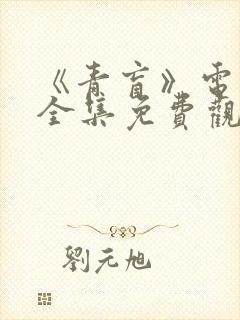 《青盲》電
全集免費觀
劉元旭